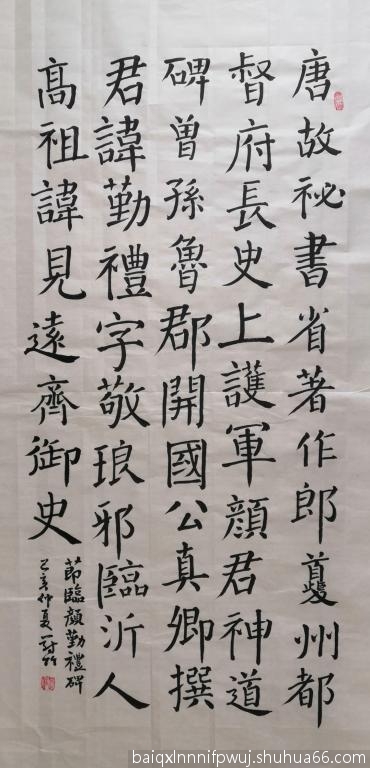 唐故祕書省著作郎夔州都
督府長史上護軍顏君神道
碑曾孫魯郡開國公真卿撰
君諱勤禮字敬琅邪臨沂人
高祖諱見遠齊御史
節臨顏勤禮碑
己亥仲夏
baiqxlnnnifpwuj.shuhua66.com